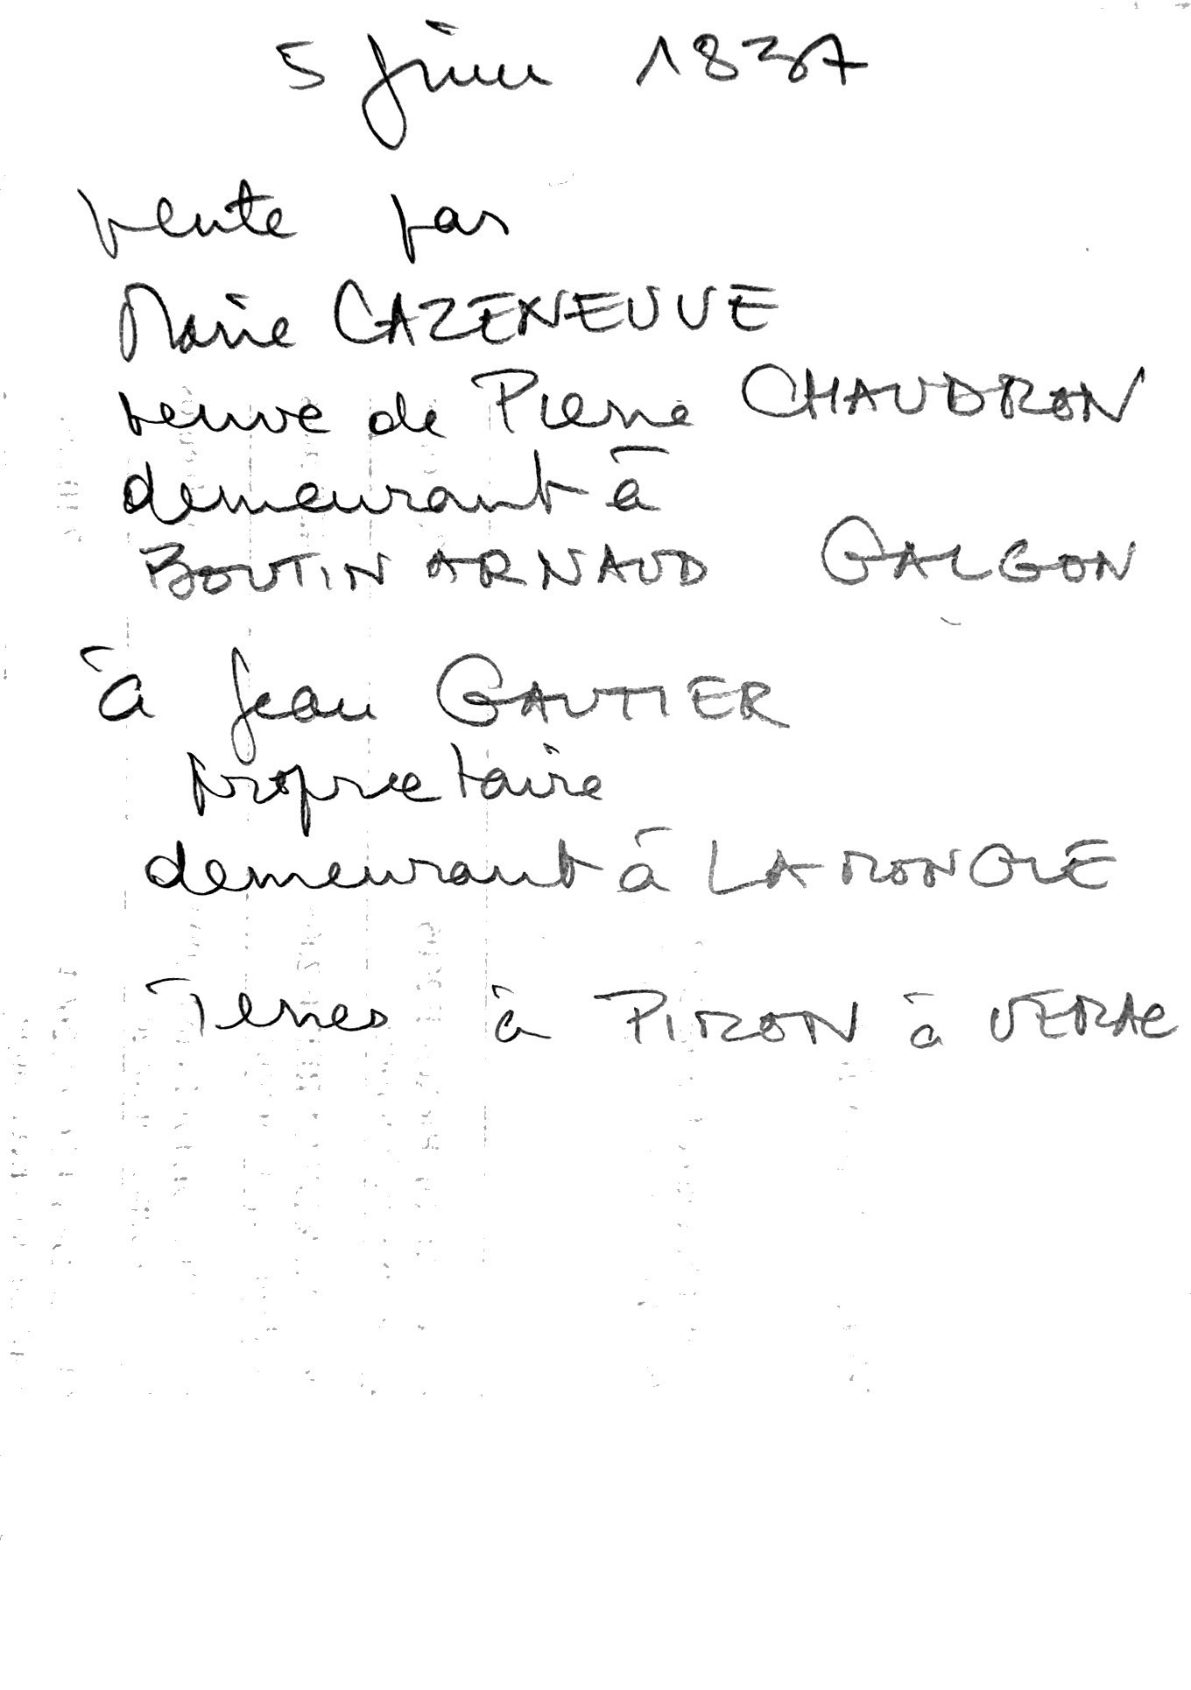 5 juin 1837
vente par
Marie CAZENEUVE
veuve de Pierre CHAUDRON
demeurant à
BOUTIN ARNAUD GALGON
à Jean GAUTIER
proprietaire
demeurant à LA RONGLE
Terres à PIRON à VERAC